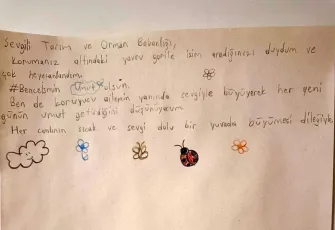 Sevgili Tarım ve Orman Bakanlığı,
Korumanız altındaki yavru gorile isim aradığınızı duydum ve
çok heyecanlandım.
#BenceİsmiUmutOlsun,
Ben de koruyucu ailemin yanında sevgiyle büyüyerek her yeni
günün umut getirdiğini düşünüyorum.
Her canlının sıcak ve sevgi dolu bir yuvada büyümesi dileğiyle